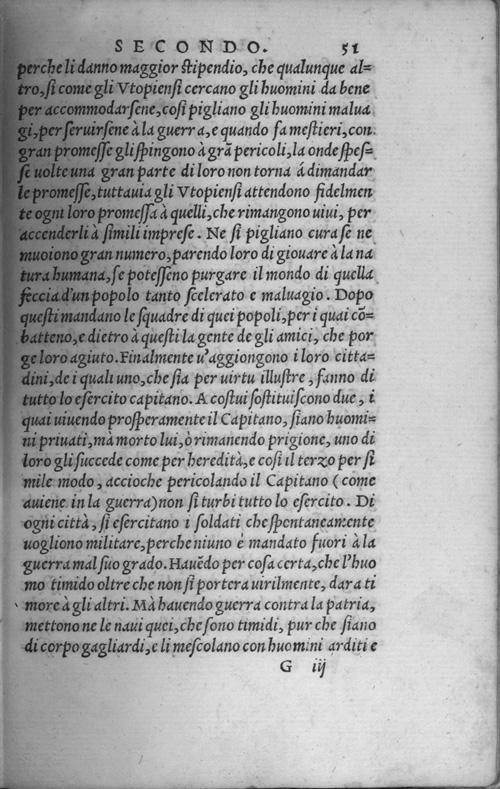 SECONDO. 51
perche li danno maggior stipendio, che qualunque al=
tro, si come gli Vtopiensi cercano gli huomini da bene
per accommodarsene, così pigliano gli huomini malua
gi, per seruirsene à la guerra, e quando fa mestieri, con
gran promesse gli spingono à grã pericoli, la onde spes=
se uolte una gran parte di loro non torna á dimandar
le promesse, tuttauia gli Vtopiensi attendono fidelmen
te ogni loro promessa à quelli, che rimangono uiui, per
accenderli à simili imprese. Ne si pigliano cura se ne
muoiono gran numero, parendo loro di giouare à la na
tura humana, se potesseno purgare il mondo di quella
feccia d'un popolo tanto scelerato e maluagio. Dopo
questi mandano le squadre di quei popoli, per i quai cõ=
batteno, e dietro à questi la gente de gli amici, che por
ge loro agiuto. Finalmente u'aggiongono i loro citta=
dini, de i quali uno, che sia per virtu illustre, fanno di
tutto lo esercito capitano. A costui sostituiscono due, i
quai uiuendo prosperamente il Capitano, siano huomi=
ni priuati, mà morto lui, ò rimanendo prigione, uno di
loro gli succede come per heredità, e così il terzo per si
mile modo, accioche pericolando il Capitano (come
auiene in la guerra) non si turbi tutto lo esercito. Di
ogni città, si esercitano i soldati che spontaneamente
uogliono militare, perche niuno é mandato fuori à la
guerra mal suo grado. Hauẽdo per cosa certa, che l'huo
mo timido oltre che non si portera uirilmente, dara ti
more à gli altri. Mà hauendo guerra contra la patria,
mettono ne le naui quei, che sono timidi, pur che siano
di corpo gagliardi, e li mescolano con huomini arditi e
G iij